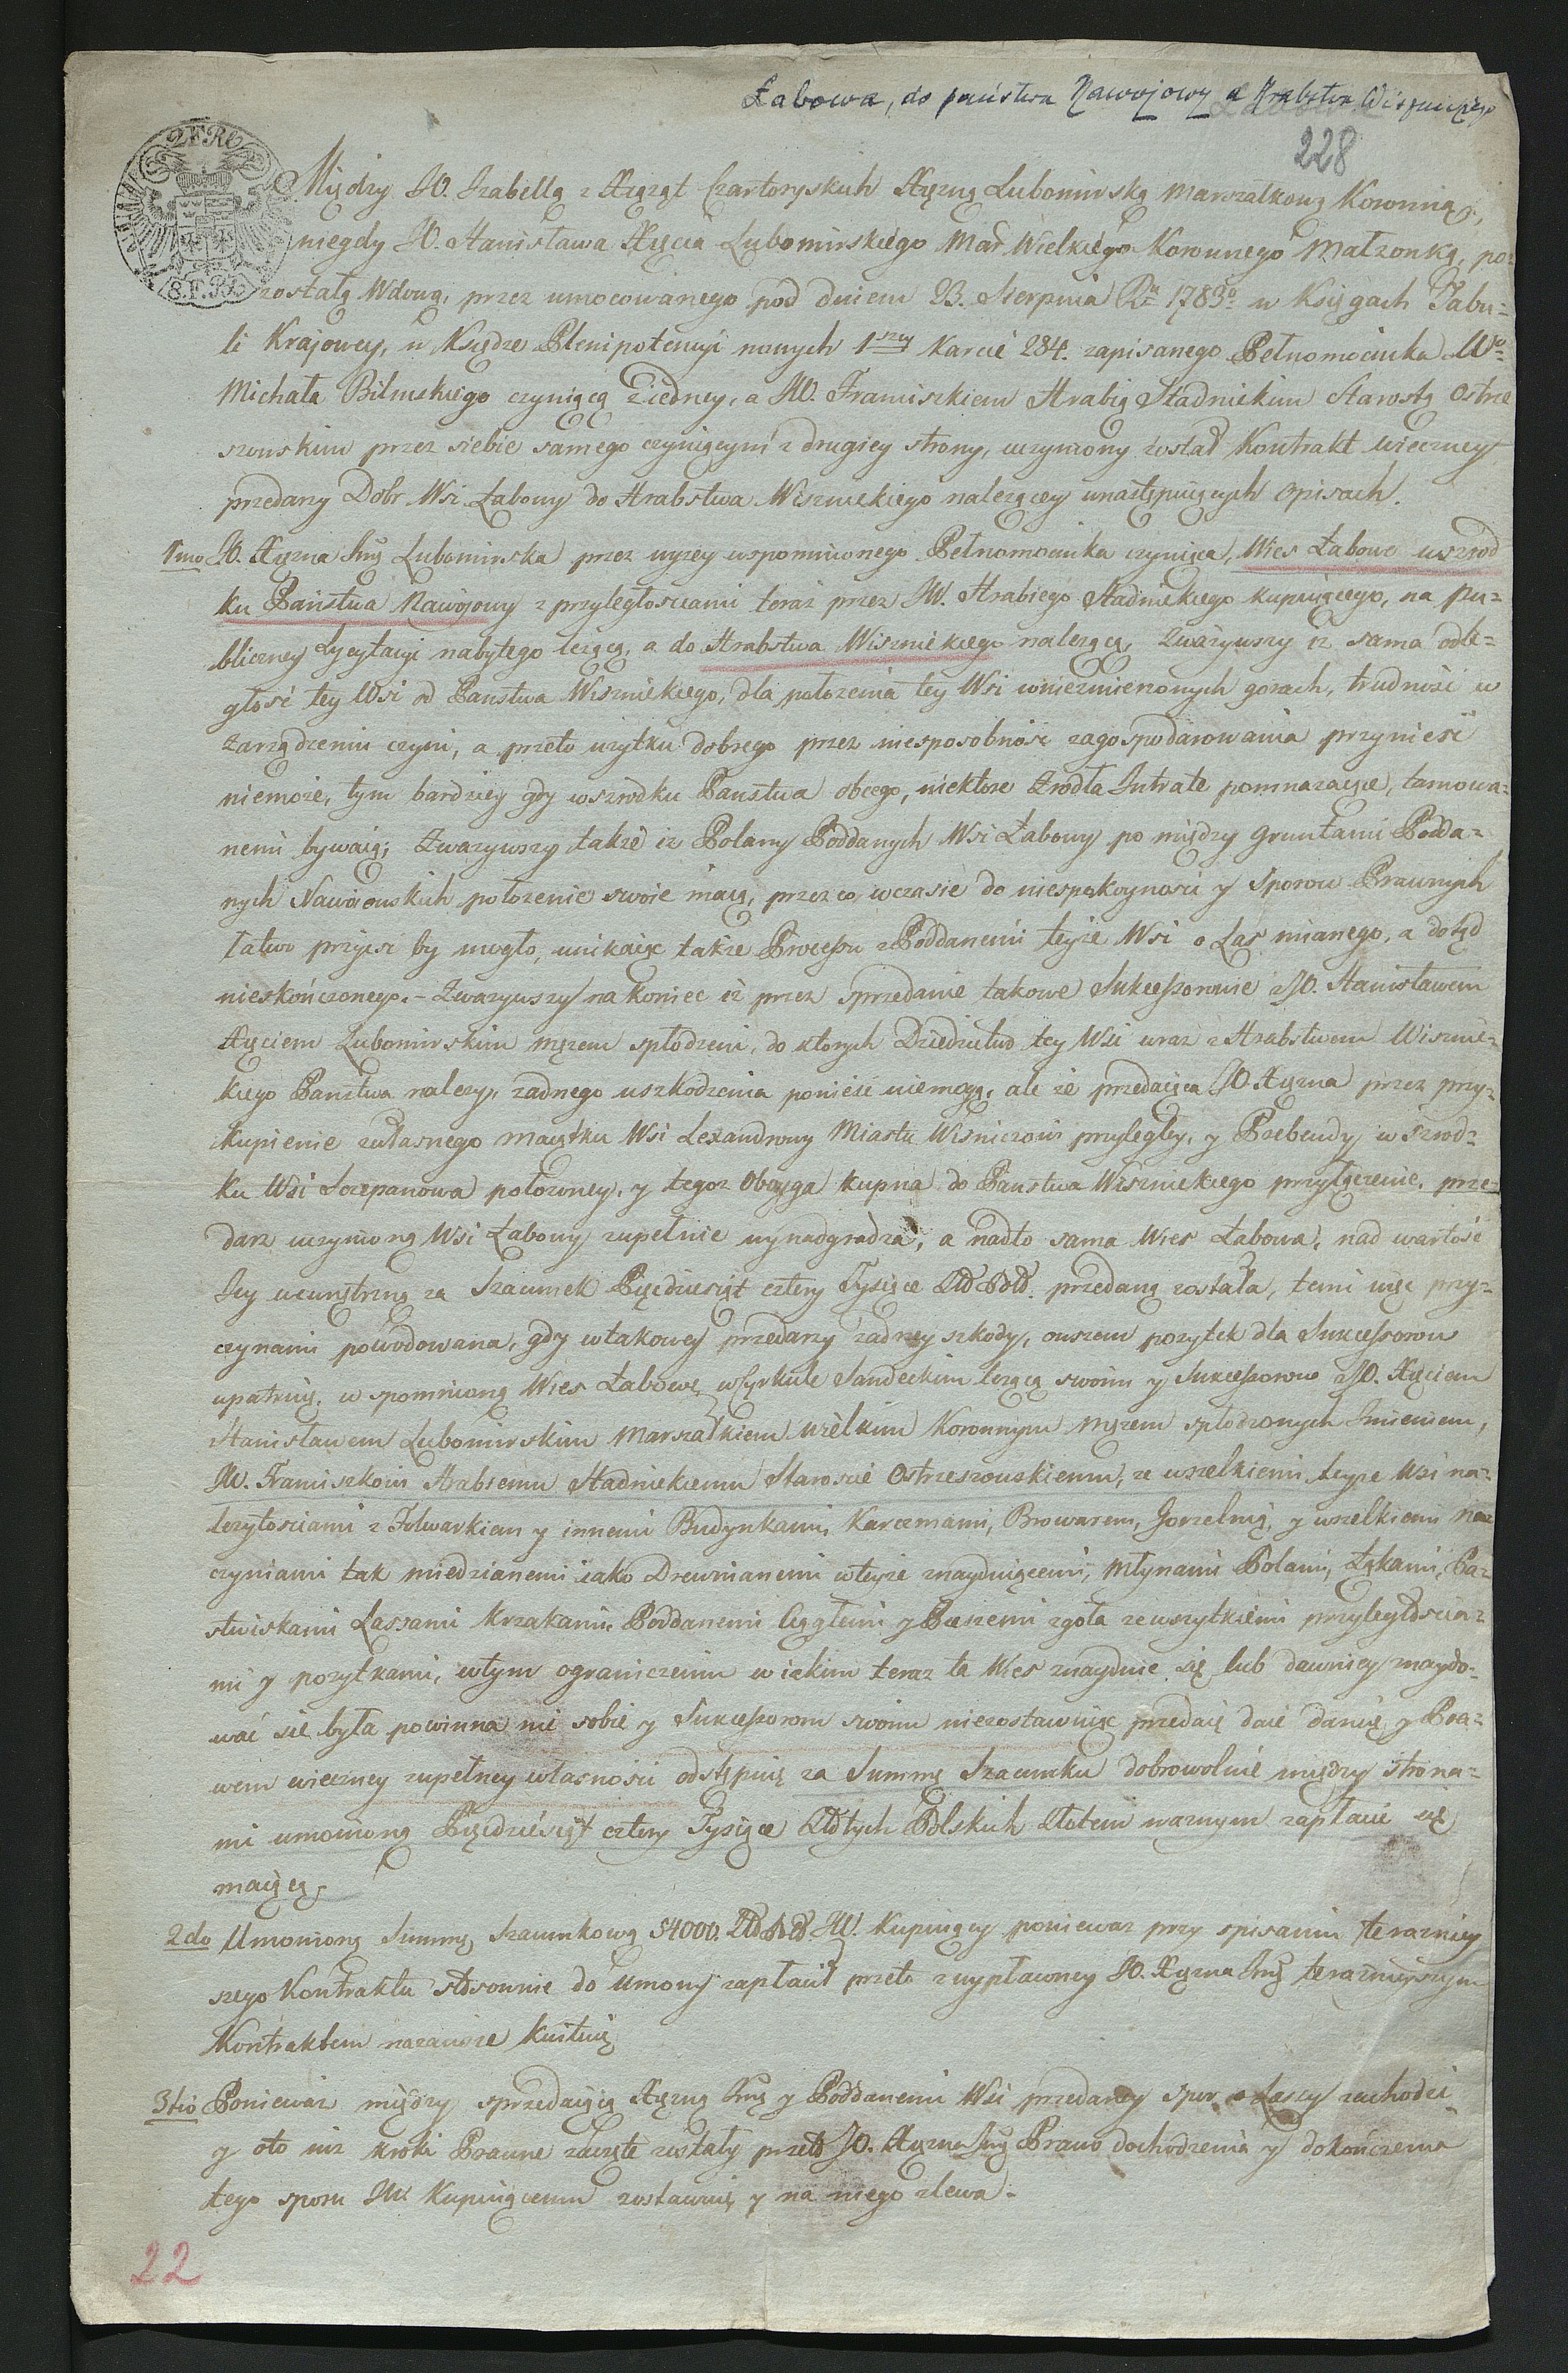 Łabowa, do państwa Nawojowy a Hrabstwa Wisznickiego
228
2 F. R.
8. F. P.
Między JO. Izabellą z Xiążąt Czartoryskich Xiężną Lubomirską Marszałkową Koronną,
niegdy JO. Stanisława Xięcia Lubomirskiego Mar. Wielkiego Koronnego Małzonką, po-
zostałą Wdową, przez umocowanego pod dniem 23. Sierpnia Ru 1783o w Księgach Tabu-
li Krajowey, w Księdze Plenipotencyi nowych 1szey Karcie 284. zapisanego Pełnomocnika Wo
Michała czyniącą z iedney, a JW. Franciszkiem Hrabią Stadnickim Starostą Ostrze
szowskim przez siebie samego czyniącym z drugiey strony, uczyniony został Kontrakt wieczney
przedazy Dobr Wsi Łabowy do Hrabstwa Wisznickiego nalezącey w następuiących Opisach.
1mo JO. Xiężna Imć Lubomirska przez wyzey wspomnionego Pełnomocnika czyniąca, Wies Łabowe wszrod
ku Państwa Nawojowy z przyległosciami teraz przez JW. Hrabiego Stadnickiego kupuiącego, na pu-
bliczney Lycytacyi nabytego lezącą, a do Hrabstwa Wisznickiego nalezącą, Zwazywszy iz sama odle-
głość tey Wsi od Panstwa Wisznickiego, dla połozenia tey Wsi w niezmierzonych gorach, trudność w
zarządzeniu czyni, a przeto uzytku dobrego przez niesposobność zagospodarowania przynieść
niemoże, tym bardziey gdy wszrodku Panstwa obcego, niektore Zrodła Intratę pomnazaiące, tamowa-
nemi bywaią; Zwazywszy także iz Polany Poddanych Wsi Łabowy po między gruntami Podda-
nych Nawoiowskich połozenie swoie maią, przez co w czasie do niespokoyności y Sporow Prawnych
łatwo przyisc by mogło, unikaiąc takze Processu z Poddanemi teyże Wsi o Las mianego, a dotąd
nieskończonego. - Zwazywszy na koniec iż przez sprzedanie takowe Sukcessorowie z JO. Stanisławem
Xięciem Lubomirskim mężem spłodzeni, do ktorych Dziedzictwo tey Wsi wraz z Hrabstwem Wiszni-
kiego Państwa nalezy, zadnego uszkodzenia ponieść niemogą, ale że przedaiąca JO. Xiężna przez przy-
kupienie z własnego maiątku Wsi Lexandrowy Miastu Wisniczowi przyległey, y Prebendy w szrod-
ku Wsi Szczepanowa połozoney, y tegoz Oboyga kupna do Panstwa Wisznickiego przyłączenie, prze-
darz uczynioną Wsi Łabowy zupełnie wynadgradza, a nadto sama Wies Łabowa, nad wartość
Jey wewnętrzną za Szacunek Pięcdziesiąt cztery Tysięce Złd Pold. przedaną została, temi więc przy-
czynami powodowana, gdy w takowey przedazy zadney szkody, owszem pozytek dla Sukcessorow
upatruię, wspomnioną Wies Łabowę w Cyrkule Sandeckim lezącą swoim y Sukcessorow z JO. Xięciem
Stanisławem Lubomirskim Marszałkiem Wielkim Koronnym Męzem spłodzonych Imieniem,
JW. Franciszkowi Hrabiemu Stadnickiemu Staroscie Ostrzeszowskiemu, ze wszelkiemi teyze Wsi na-
lezytosciami z Folwarkiem y innemi Budynkami, Karczmami, Browarem, Gorzelnią, y wszelkiemi na-
czyniami tak miedzianemi iako Drewnianemi w teyze znayduiącemi, Młynami Polami, Łąkami, Pa-
stwiskami Lassami Krzakami, Poddanemi Ciągłemi y Pieszemi zgoła ze wszytkiemi przyległoscia-
mi y pozytkami, w tym ograniczeniu w iakim teraz ta Wies znayduie się lub dawniey znaydo-
wać się była powinna nic sobie y Sukcessorom swoim niezostawuiąc przedaię daię daruię y Pra-
wem wieczney zupełney własności odstępuię za Summę Szacunku dobrowolnie między strona-
mi umowioną Pięcdziesiąt cztery Tysiące Złotych Polskich Złotem waznym zapłacić się
maiącą.
2do Umowioną Summę Szacunkową 54000. Złd Pold JW. Kupuiący poniewaz przy spisaniu terazniey
szego Kontraktu stosownie do umowy zapłacił przeto z wypłaconey JO. Xiężna Imć teraznieyszym
Kontraktem nazawsze kwituię
3tio Poniewaz między sprzedaiącą Xiężną Imć y Poddanemi Wsi przedaney Spor o Lasy zachodzi
y oto iuz kroki Prawne zaczęte zostały przeto JO. Xiężna Imć Prawo dochodzenia y dokończenia
tego sporu JW. Kupuiącemu zostawuię y na niego zlewa.
22